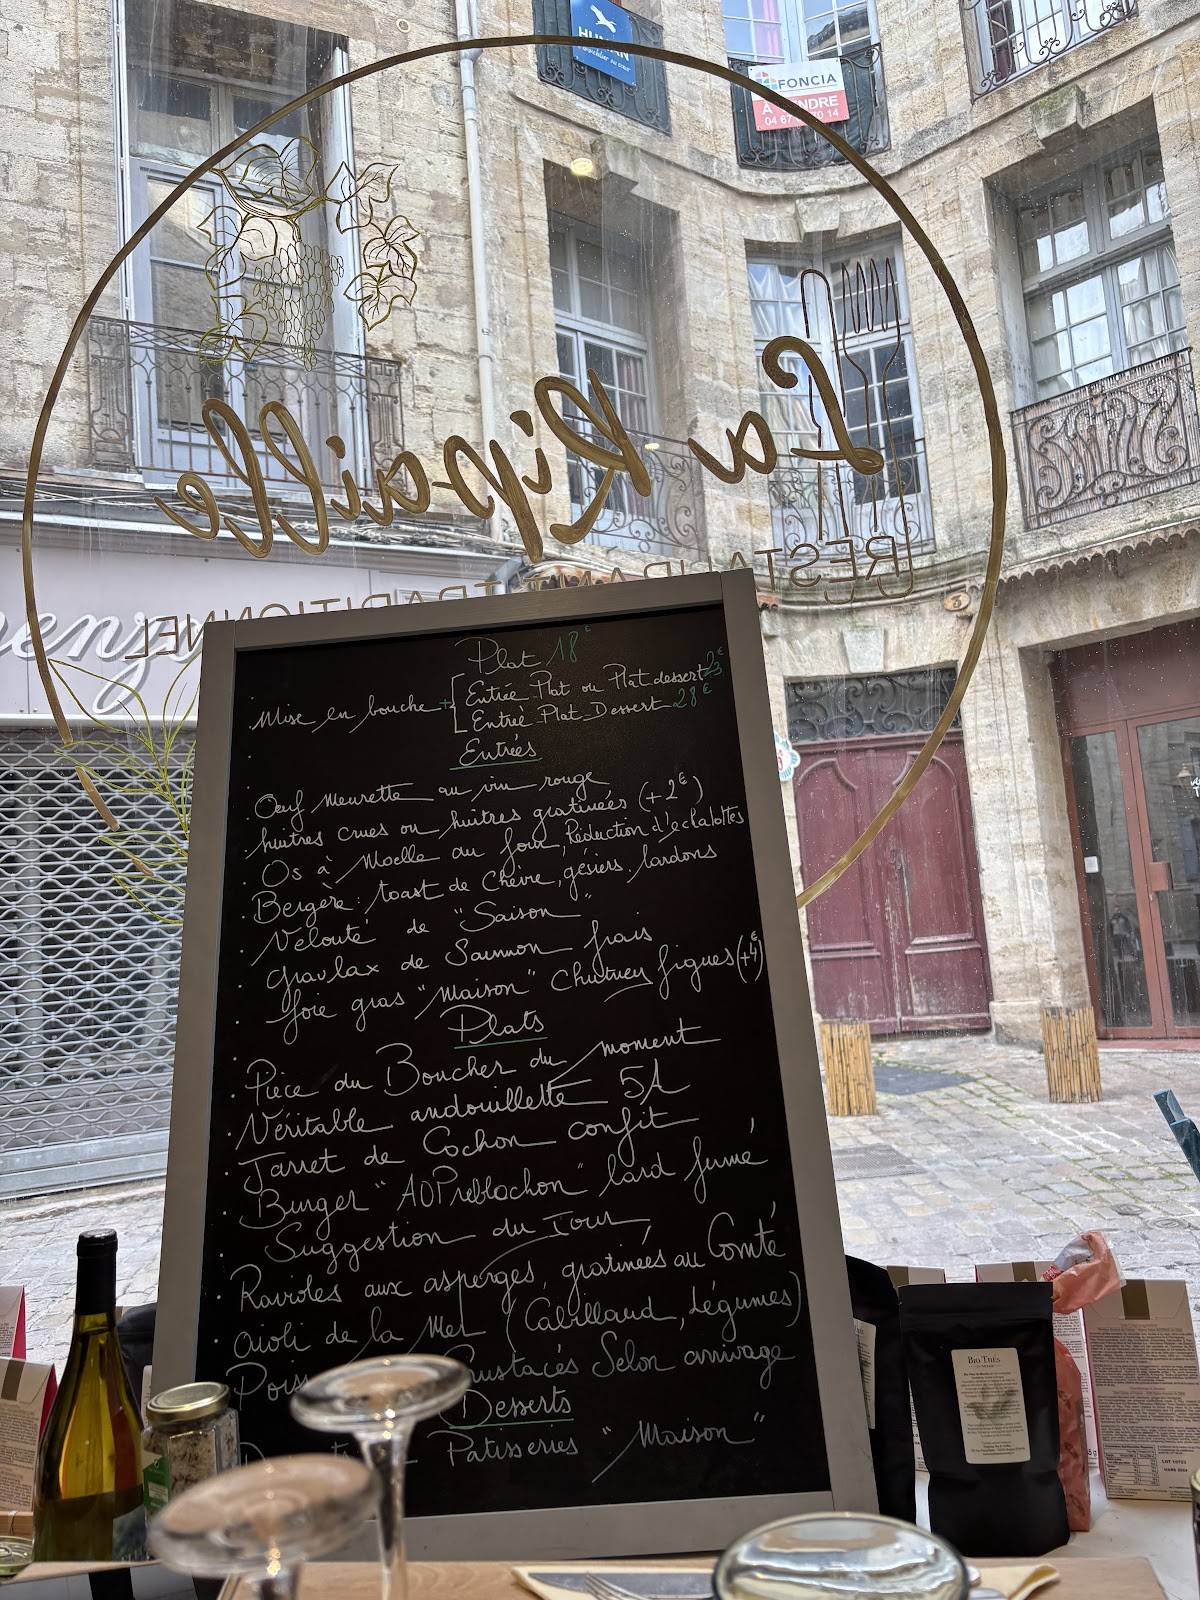 HUMAN
FONCIA
A VENDRE
04 67 70 14
La Ripaille
RESTAURANT TRADITIONNEL
3
Plat 18€
Mise en bouche + Entrée Plat ou Plat dessert 23€
Entreè Plat Dessert 28€
Entrées
. Œuf Meurette au vin rouge
. huitres crues ou huitres gratinées (+2€)
. Os à Moelle au four, Réduction d'échalottes
. Bergère: toast de Chèvre, gésiers, lardons
. Velouté de "Saison"
. gravlax de Saumon frais
. foie gras "Maison" Chutney figues (+4€)
Plats
. Pièce du Boucher du moment
. Véritable andouillette 5A
. Jarret de Cochon confit
. Burger "AOP reblochon" lard fumé
. Suggestion du Jour
. Ravioles aux asperges, gratinées au Comté
. aioli de la Mer (Cabillaud, Légumes)
Crustacés Selon arrivage
Desserts
Patisseries "Maison"
BIO THÉS
LOT 10723